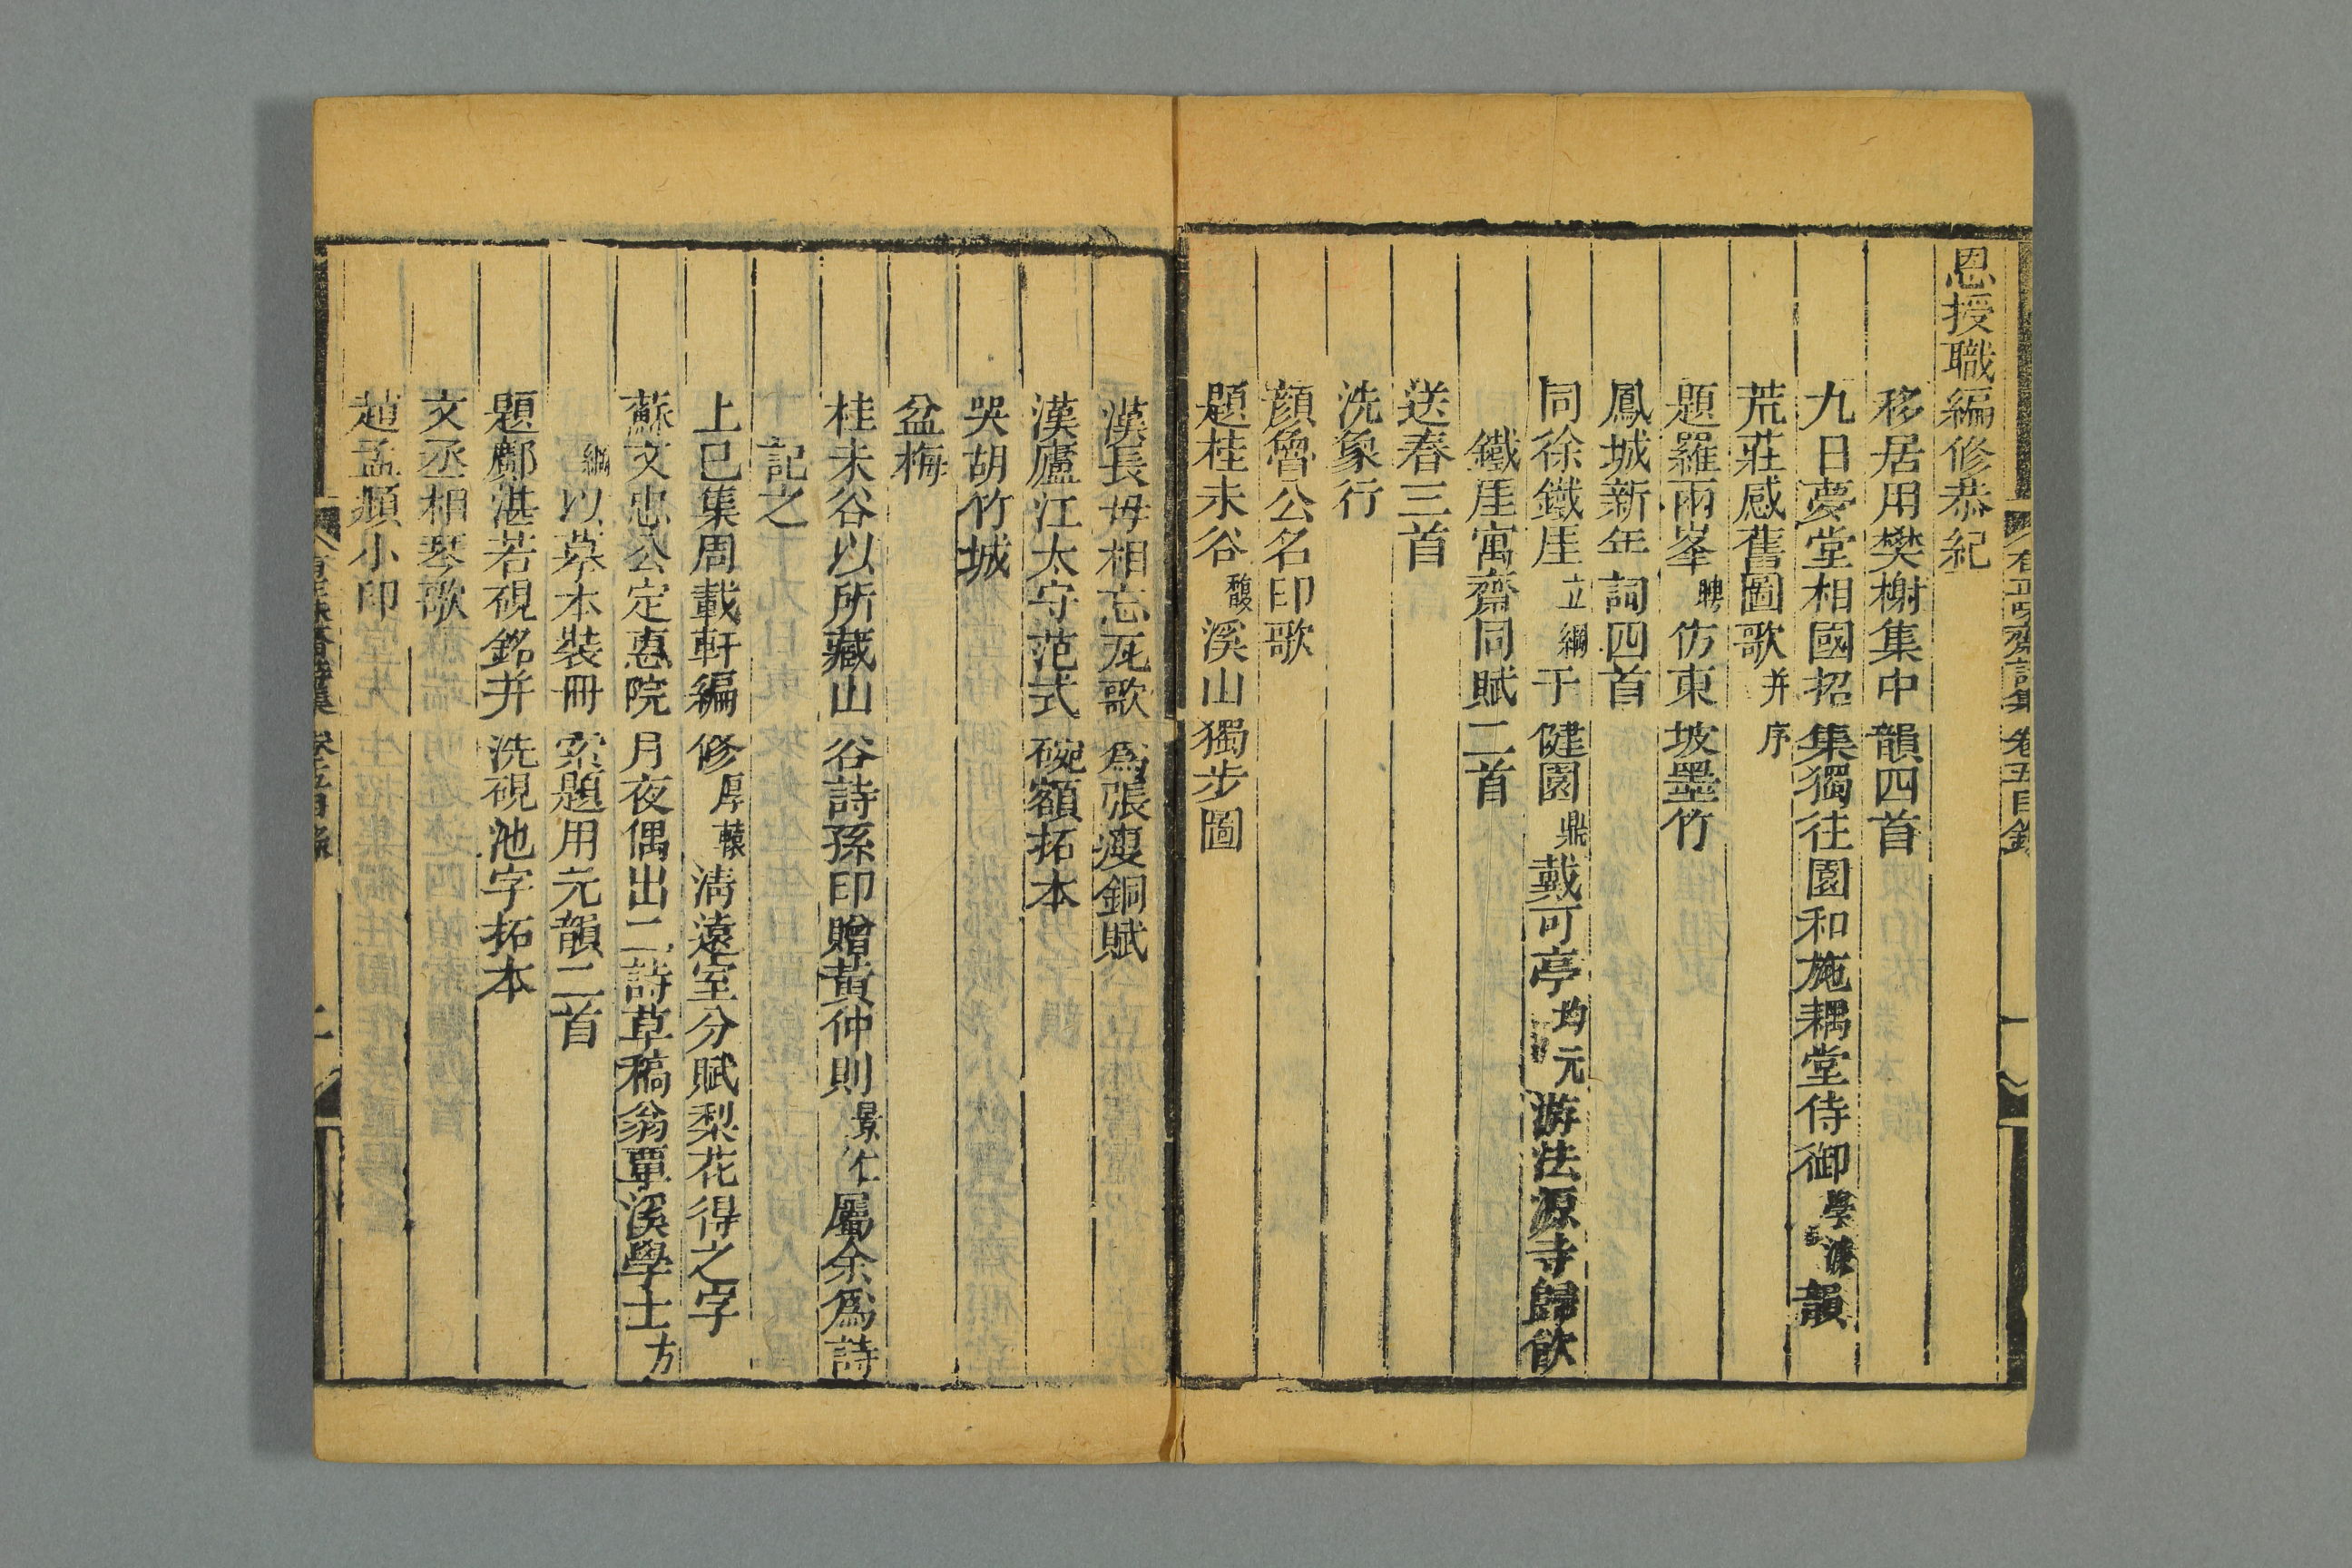 恩授職編修恭紀
移居用樊榭集中韻四首
九日夢堂相國招集獨往園和施耦堂侍御學濂韻
荒莊感舊圖歌并序
題羅兩峯聘仿東坡墨竹
鳳城新年詞四首
同徐鐵厓立綱于健園鼎戴可亭均元游法源寺歸飲
鐵厓寓齋同賦二首
送春三首
洗象行
顔魯公名印歌
題桂未谷馥溪山獨步圖
漢長毋相忘瓦歌爲張瘦銅賦
漢廬江太守范式碗額拓本
哭胡竹城
盆梅
桂未谷以所藏山谷詩孫印贈黃仲則景仁屬余爲詩
記之
上巳集周載軒編修厚轅清遠室分賦梨花得之字
蘇文忠公定惠院月夜偶出二詩草稿翁覃溪學士方
綱以摹本裝冊索題用元韻二首
題鄺湛若硯銘并洗硯池字拓本
文丞相琴歌
趙孟頫小印